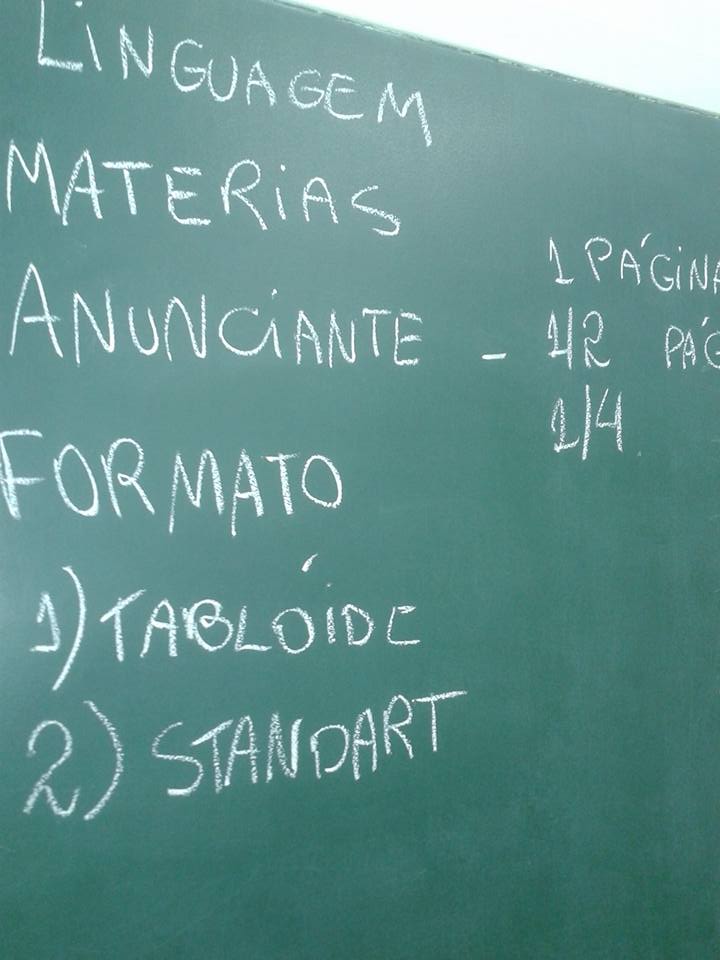 LINGUAGEM
MATERIAS
ANUNCIANTE - 1 PÁGINA
1/2 PÁG
1/4
FORMATO
1) TABLÓIDE
2) STANDART